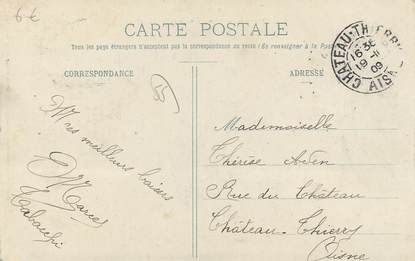 6€
CARTE POSTALE
Tous les pays étrangers n'acceptent pas la correspondance au recto (Se renseigner à la Poste)
CORRESPONDANCE
ADRESSE
CHÂTEAU-THIERRY
16 30
19 -11
09
AISNE
Mes meilleurs baisers
Marcel
Mademoiselle
Thérèse
Rue du Château
Château-Thierry
Aisne